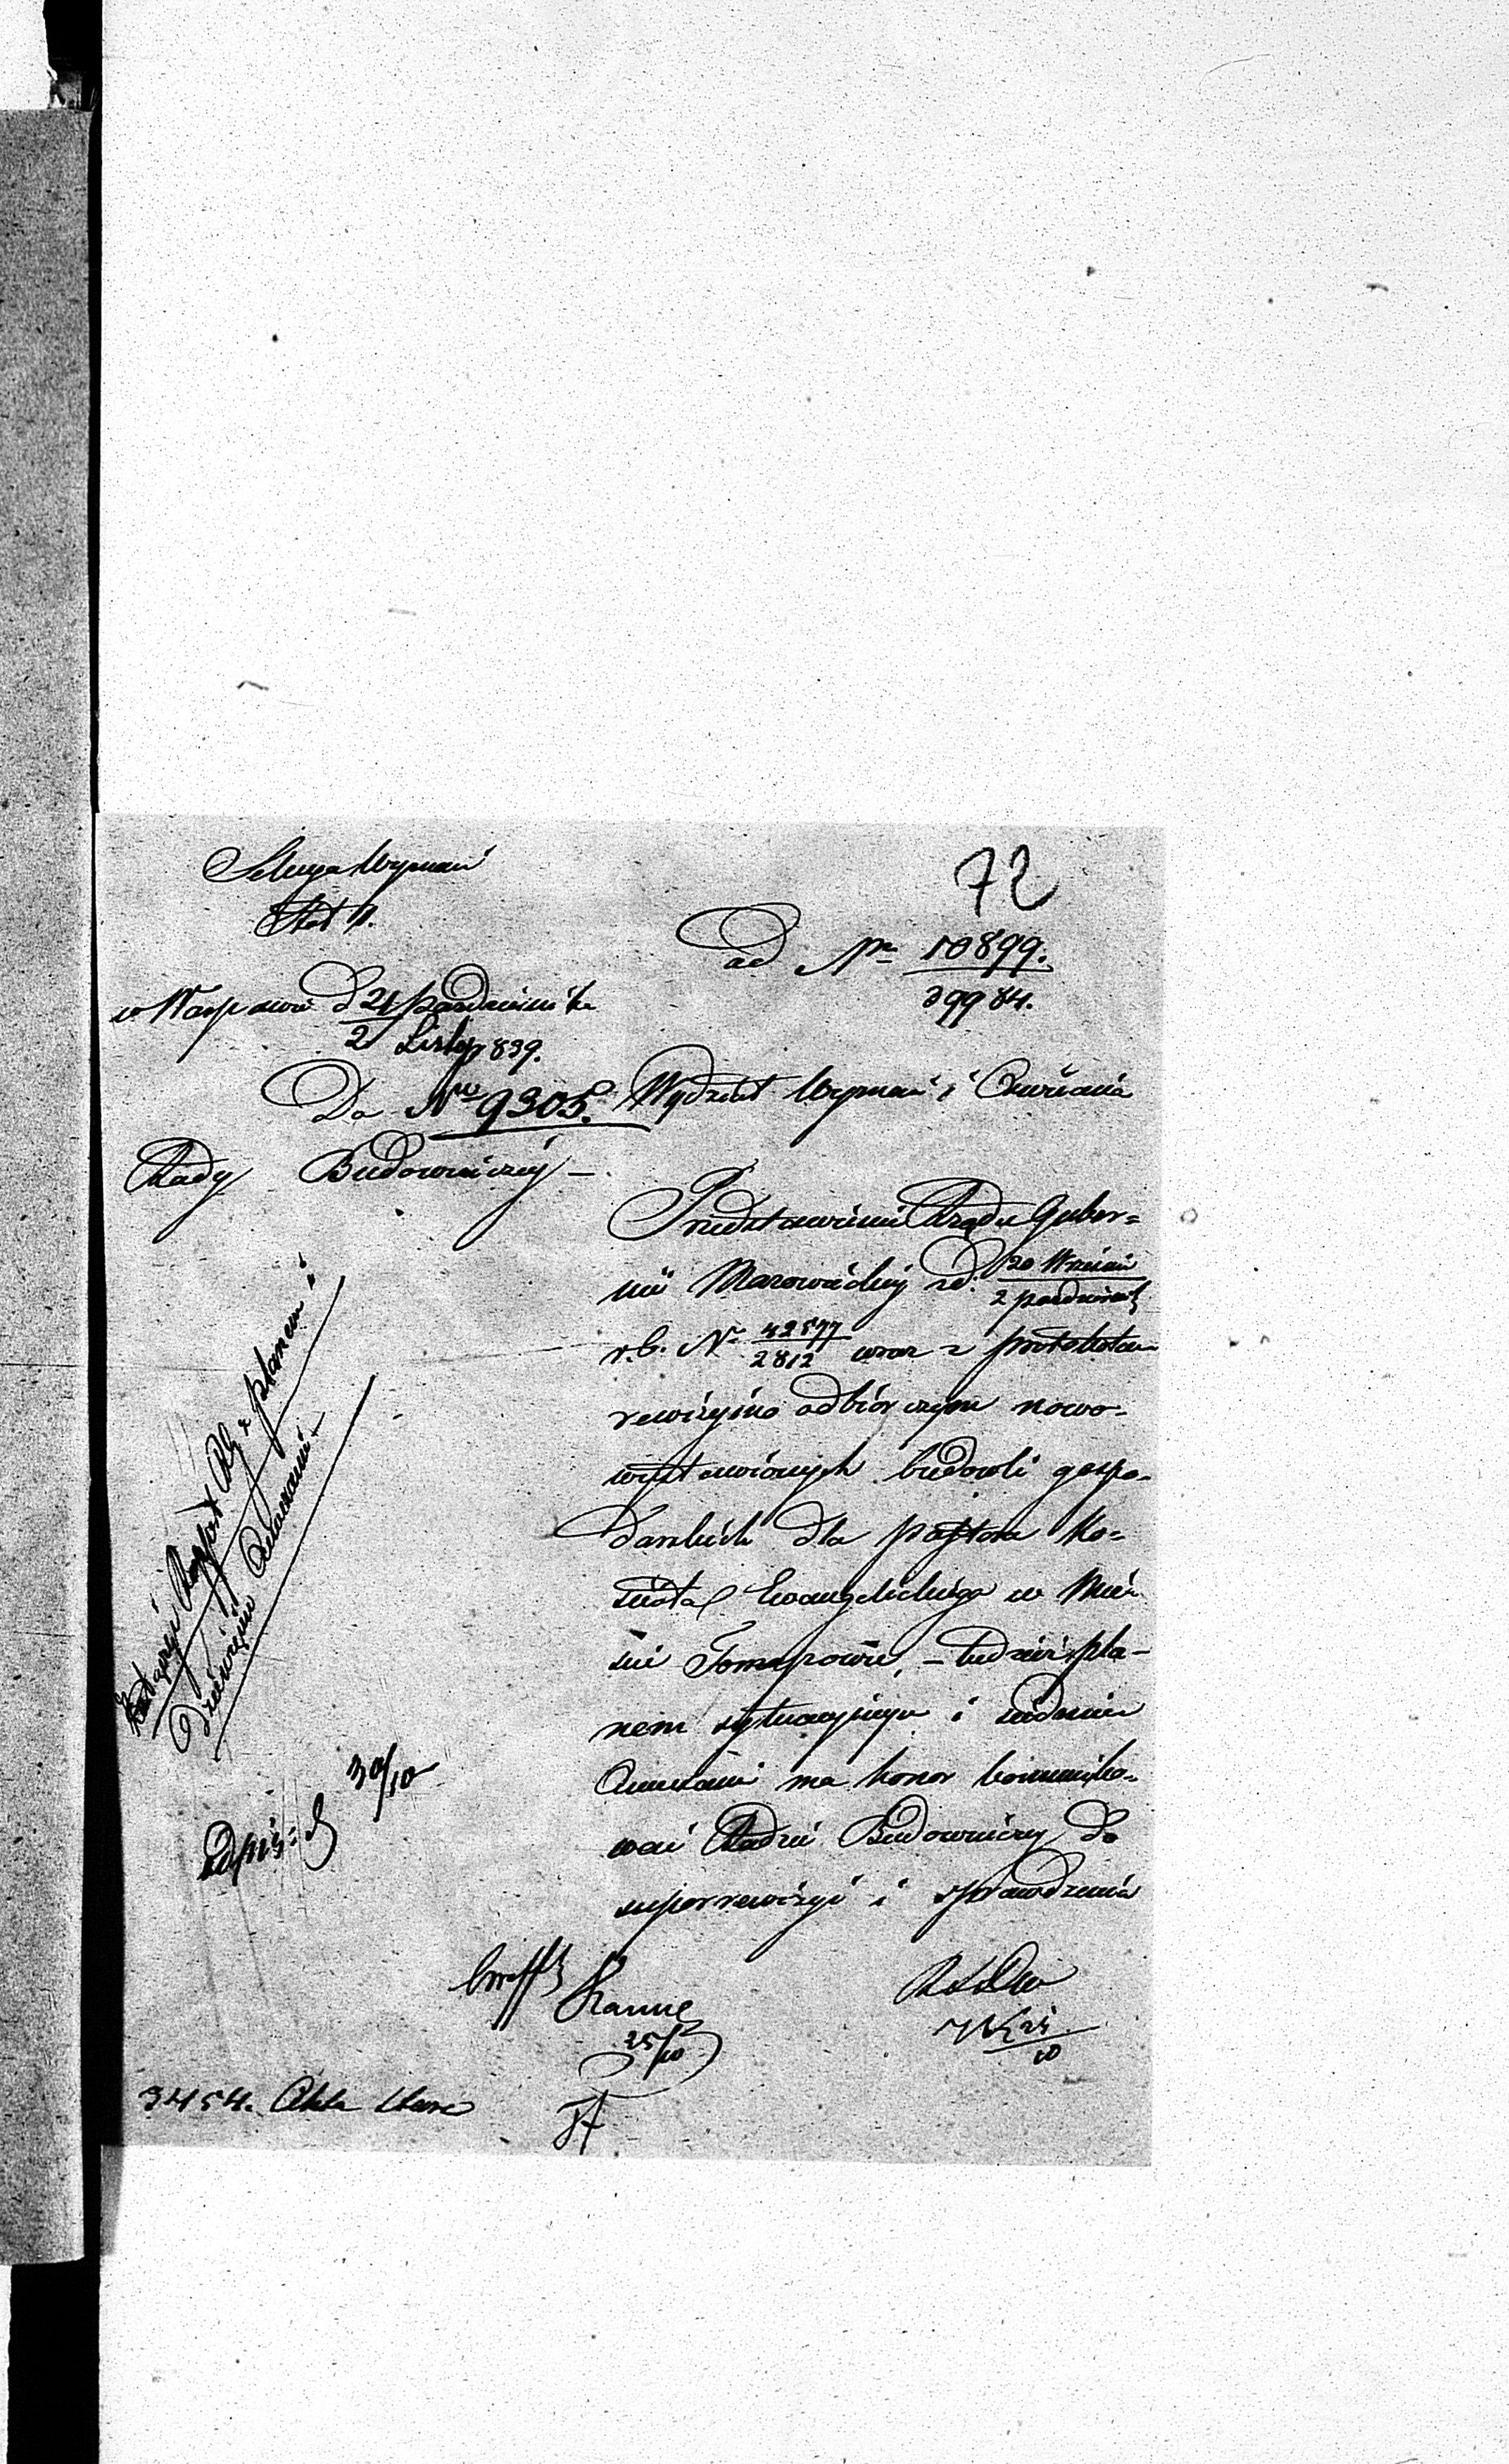 Sekcya Wyznań
Stół II.
72
ad Nr 10899.
39984.
w Warszawie d 21 Października
2 Listop 839.
Do Nru 9305. Wydział Wyznań i Oświecenia
Rady Budowniczéj —
Przedstawienie Rządu Guber=
nii Mazowieckiéj z d. 20 Września
2 październ
r.b. No 42577
2812 wraz z protokołem
rewizyino odbiórczym nowo-
wystawionych budowli gospo-
darskich dla pastora Ko-
ścioła Ewangelickiego w Mie-
ście Tomaszowie, — tudzież pla-
nem sytuacyjnym i
ma honor kommuniko-
wać Radzie Budowniczéj do
superrewizyi i sprawdzenia
Raport z planem i
30/10
25/10
25
10
3454. Akta